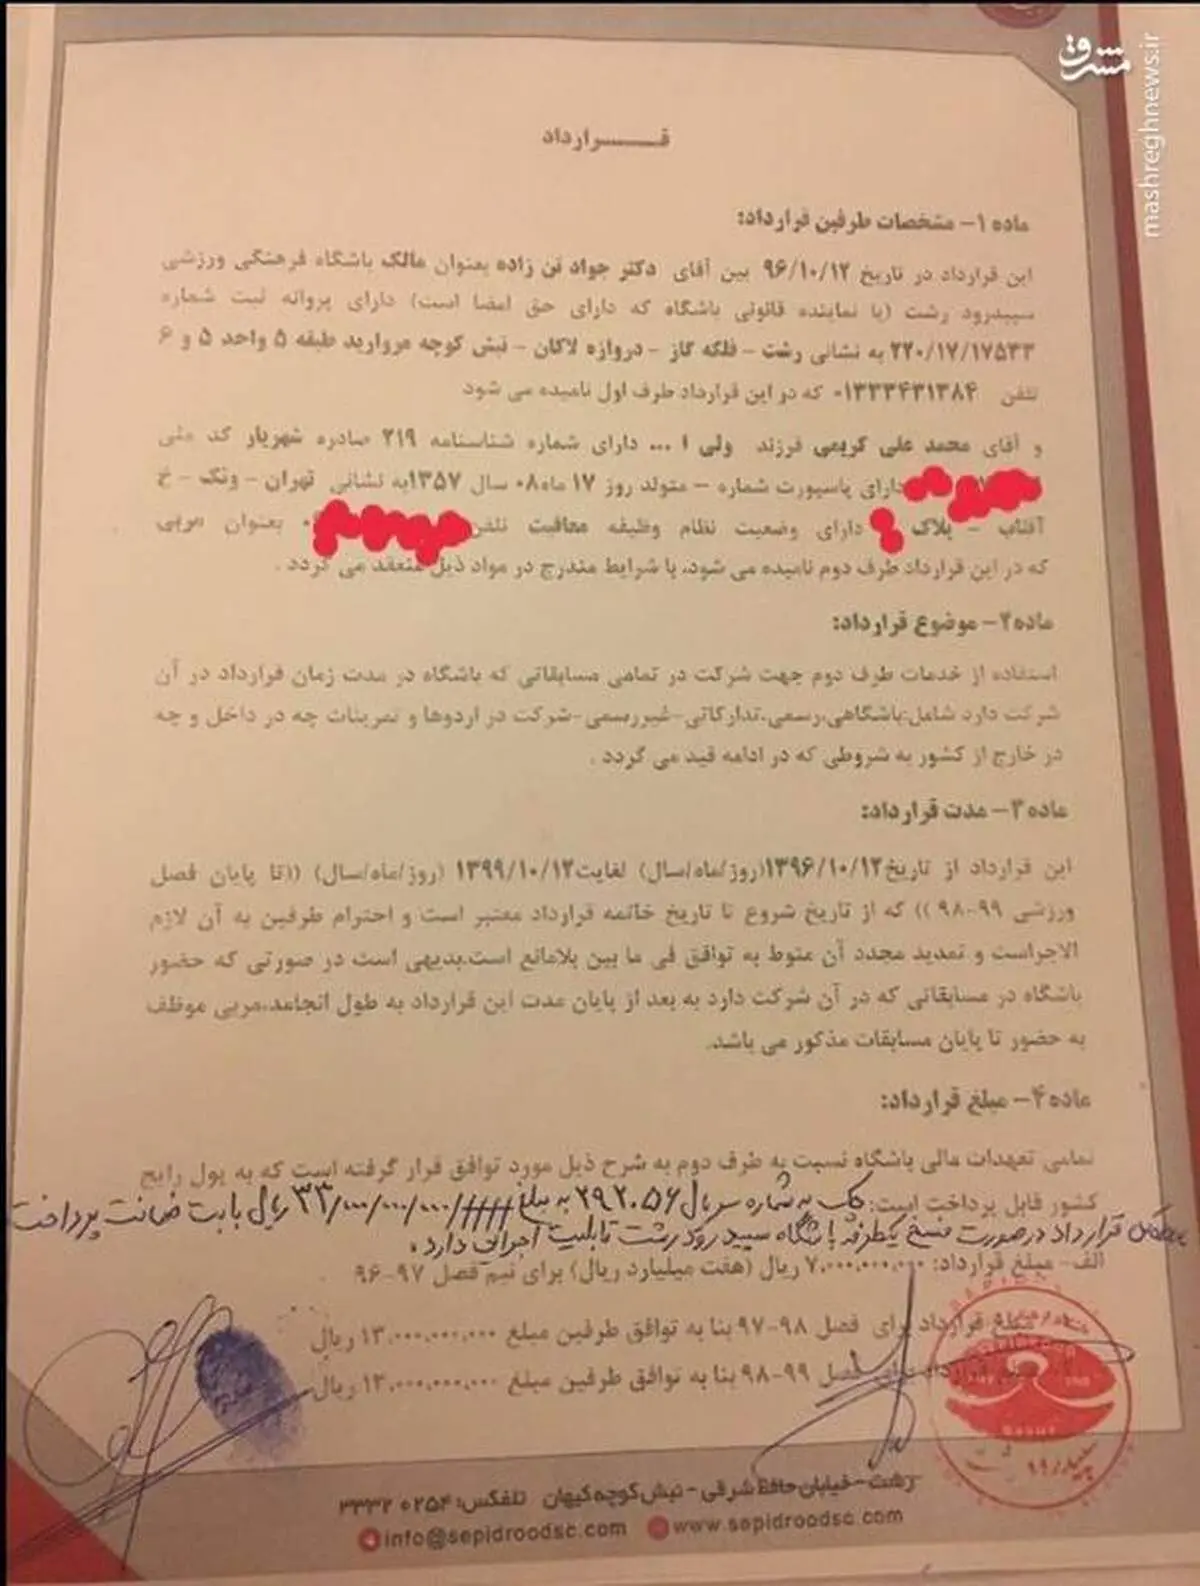 مشرق
mashreghnews.ir
قــــرارداد
ماده ۱- مشخصات طرفین قرارداد:
این قرارداد در تاریخ ۹۶/۱۰/۱۲ بین آقای دکتر جواد تن زاده بعنوان مالک باشگاه فرهنگی ورزشی
سپیدرود رشت (یا نماینده قانونی باشگاه که دارای حق امضا است) دارای پروانه ثبت شماره
۲۲۰/۱۷/۱۷۵۳۳ به نشانی رشت - فلکه گاز - دروازه لاکان - نبش کوچه مروارید طبقه ۵ واحد ۵ و ۶
تلفن ۰۱۳۳۳۴۳۱۳۸۴ که در این قرارداد طرف اول نامیده می شود
و آقای محمد علی کریمی فرزند ولی ا ... دارای شماره شناسنامه ۲۱۹ صادره شهریار کد ملی
دارای پاسپورت شماره – متولد روز ۱۷ ماه ۰۸ سال ۱۳۵۷ به نشانی تهران - ونک - خ
آفتاب - پلاک دارای وضعیت نظام وظیفه معافیت تلفن بعنوان مربی
که در این قرارداد طرف دوم نامیده می شود، با شرایط مندرج در مواد ذیل منعقد می گردد .
ماده ۲- موضوع قرارداد:
استفاده از خدمات طرف دوم جهت شرکت در تمامی مسابقاتی که باشگاه در مدت زمان قرارداد در آن
شرکت دارد شامل:باشگاهی،رسمی،تدارکاتی-غیررسمی-شرکت در اردوها و تمرینات چه در داخل و چه
در خارج از کشور به شروطی که در ادامه قید می گردد .
ماده ۳- مدت قرارداد:
این قرارداد از تاریخ ۱۳۹۶/۱۰/۱۲(روز/ماه/سال) لغایت ۱۳۹۹/۱۰/۱۲ (روز/ماه/سال) ((تا پایان فصل
ورزشی ۹۹-۹۸ )) که از تاریخ شروع تا تاریخ خاتمه قرارداد معتبر است و احترام طرفین به آن لازم
الاجراست و تمدید مجدد آن منوط به توافق فی ما بین بلامانع است.بدیهی است در صورتی که حضور
باشگاه در مسابقاتی که در آن شرکت دارد به بعد از پایان مدت این قرارداد به طول انجامد،مربی موظف
به حضور تا پایان مسابقات مذکور می باشد.
ماده ۴- مبلغ قرارداد:
تمامی تعهدات مالی باشگاه نسبت به طرف دوم به شرح ذیل مورد توافق قرار گرفته است که به پول رایج
کشور قابل پرداخت است:
چک به شماره سریال ۲۹۲۰۵۶ به مبلغ ۳۳/۰۰۰/۰۰۰/۰۰۰/#### ریال بابت ضمانت پرداخت
قرارداد در صورت فسخ یکطرفه باشگاه سپیدرود رشت قابلیت اجرائی دارد.
الف- مبلغ قرارداد: ۷.۰۰۰.۰۰۰.۰۰۰ ریال (هفت میلیارد ریال) برای نیم فصل ۹۷-۹۶
مبلغ قرارداد برای فصل ۹۸-۹۷ بنا به توافق طرفین مبلغ ۱۳.۰۰۰.۰۰۰.۰۰۰ ریال
فصل ۹۹-۹۸ بنا به توافق طرفین مبلغ ۱۳.۰۰۰.۰۰۰.۰۰۰ ریال
RASHT
رشت - خیابان حافظ شرقی - نبش کوچه کیهان تلفکس: ۳۳۳۲۰۲۵۴
info@sepidroodsc.com www.sepidroodsc.com